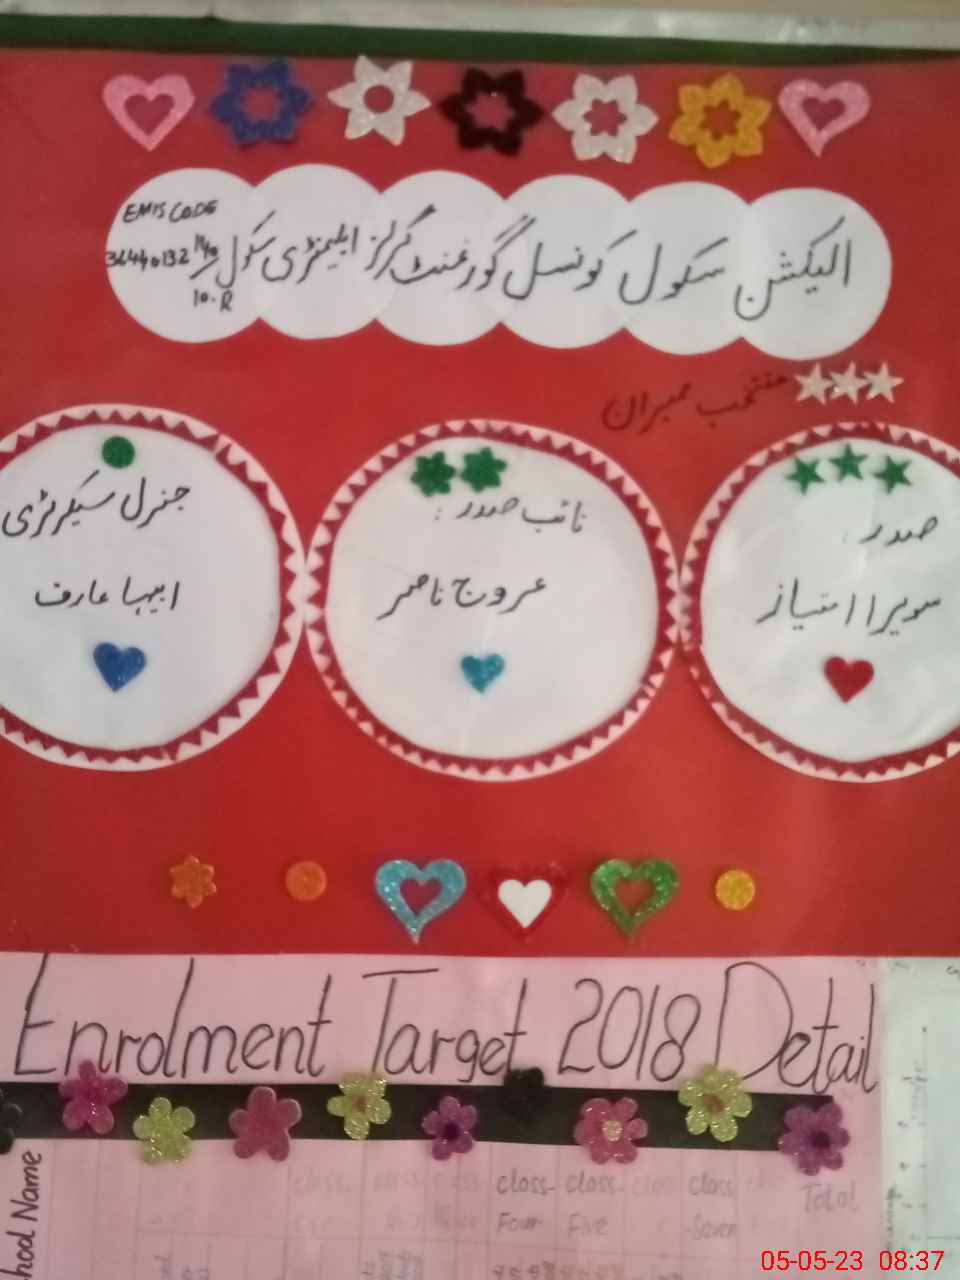 الیکشن سکول کونسل گورنمنٹ گرلز ایلیمنٹری سکول
EMIS CODE
36440132
10.R
منتخب ممبران
صدر:
سویرا امتیاز
نائب صدر:
عروج ناصر
جنرل سیکرٹری
ابیہا عارف
Enrolment Target 2018 Detail
hool Name
class Four
class Five
class Seven
Total
05-05-23 08:37